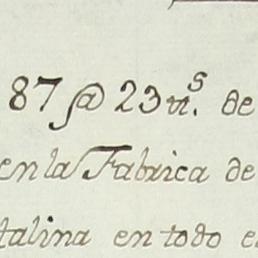 87 @ 23 ns. de
en la Fabrica de
talina en todo e